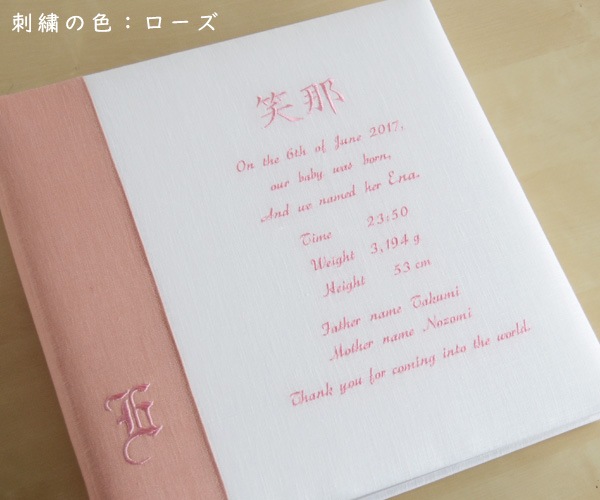 刺繍の色：ローズ
笑那
On the 6th of June 2017,
our baby was born,
And we named her Ena.
Time 23:50
Weight 3,194 g
Height 53 cm
Father name Takumi
Mother name Nozomi
Thank you for coming into the world.
E